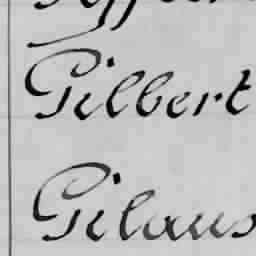 Gilbert
Gilaus